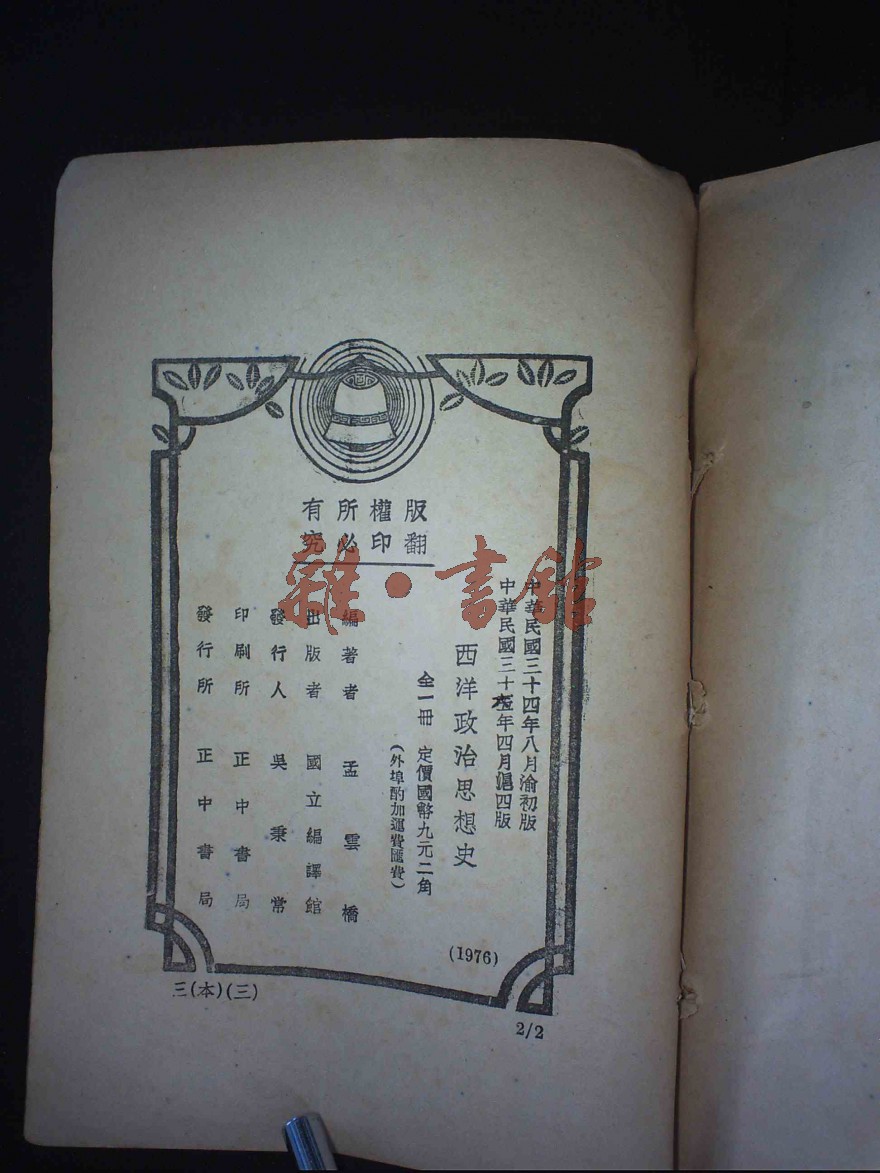 版權所有
翻印必究
中華民國三十四年八月渝初版
中華民國三十六年四月滬四版
西洋政治思想史
全一冊 定價國幣九元二角
(外埠酌加運費匯費)
編著者 孟雲橋
出版者 國立編譯館
發行人 吳秉常
印刷所 正中書局
發行所 正中書局
(1976)
三(本)(三)
2/2
雜·書館